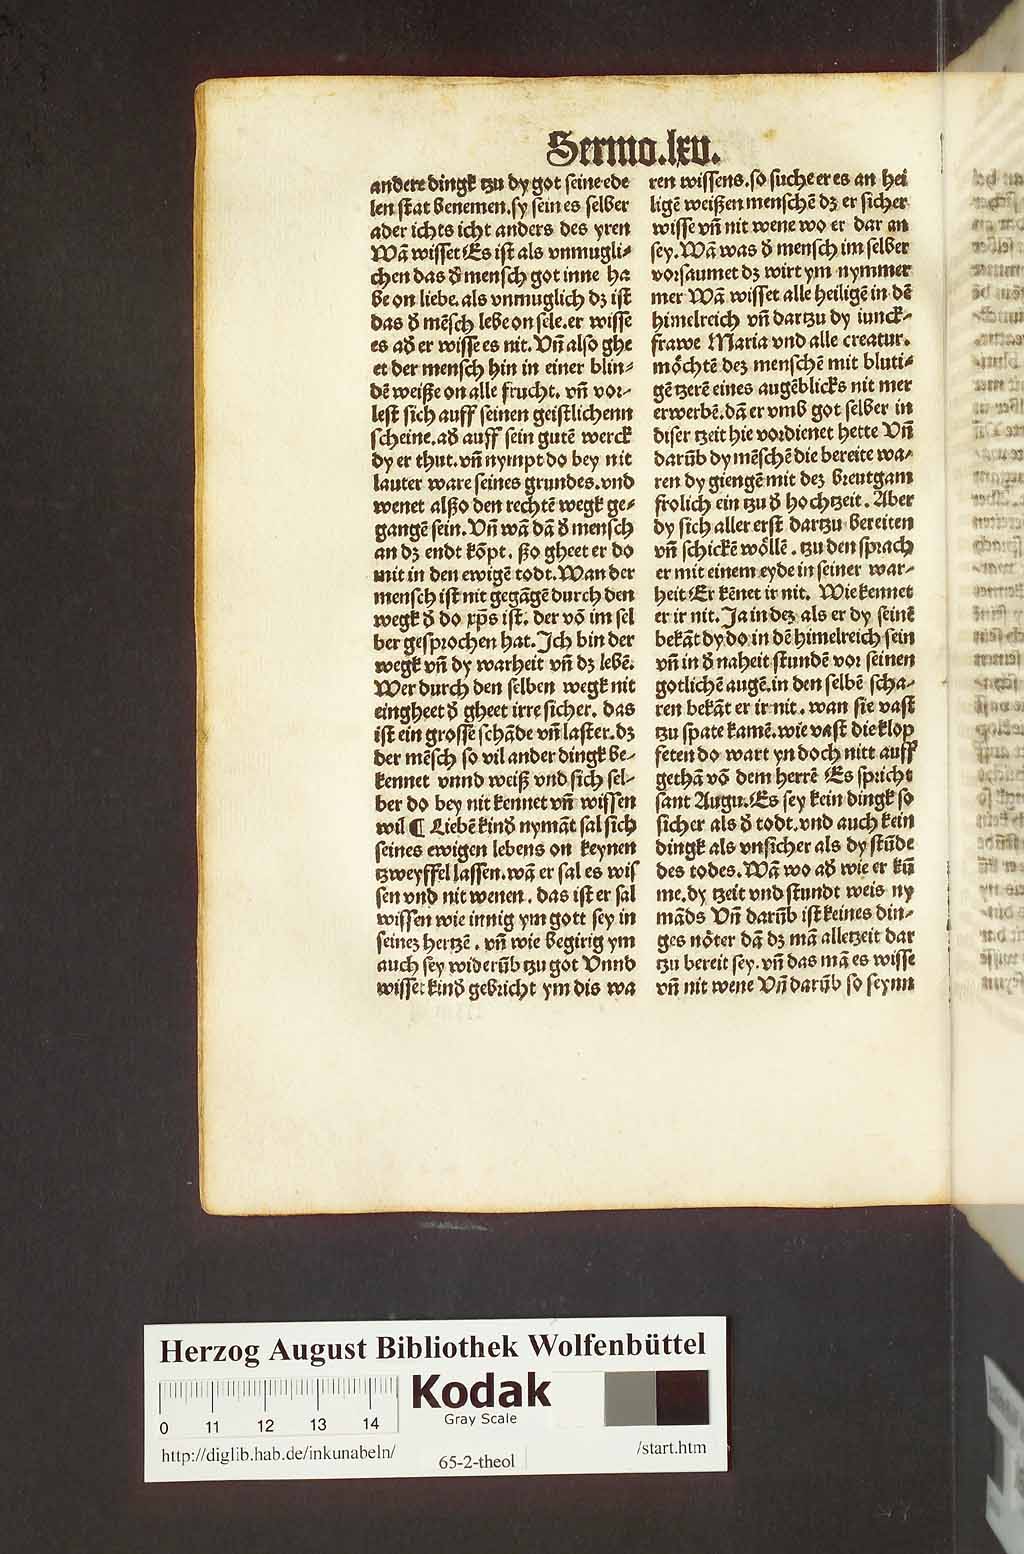 Sermo.lxv.
andere dingk tzu dy got seine ede
len stat benemen. sy sein es selber
ader ichts icht anders des yren
Wā wisset Es ist als vnmugli⸗
chen das d̄ mensch got inne ha
be on liebe. als vnmuglich dz ist
das d̄ mēsch lebe on sele. er wisse
es ad̄ er wisse es nit. Vn̄ also ghe
et der mensch hin in einer blin⸗
dē weiße on alle frucht. vn̄ vor⸗
lest sich auff seinen geistlichenn
scheine. ad̄ auff sein gutē werck
dy er thut. vn̄ nympt do bey nit
lauter ware seines grundes. vnd
wenet alßo den rechtē wegk ge⸗
gangē sein. Vn̄ wā dā d̄ mensch
an dz endt kōpt. ßo gheet er do
mit in den ewigē todt. Wan der
mensch ist nit gegāgē durch den
wegk d̄ do xp̄s ist. der vō im sel
ber gesprochen hat. Ich bin der
wegk vn̄ dy warheit vn̄ dz lebē.
Wer durch den selben wegk nit
eingheet d̄ gheet irre sicher. das
ist ein grosse schāde vn̄ laster. dz
der mēsch so vil ander dingk be⸗
kennet vnnd weiß vnd sich sel⸗
ber do bey nit kennet vn̄ wissen
wil ¶ Liebē kind̄ nymāt sal sich
seines ewigen lebens on keynen
tzweyffel lassen. wā er sal es wis
sen vnd nit wenen. das ist er sal
wissen wie innig ym gott sey in
seinez hertzē. vn̄ wie begirig ym
auch sey widerūb tzu got Vnnd
wisset kind̄ gebricht ym dis wa
ren wissens. so suche er es an hei
ligē weißen menschē dz er sicher
wisse vn̄ nit wene wo er dar an
sey. Wā was d̄ mensch im selber
vorsaumet dz wirt ym nymmer
mer Wā wisset alle heiligē in dē
himelreich vn̄ dartzu dy iunck⸗
frawe Maria vnd alle creatur.
möchtē dez menschē mit bluti⸗
gē tzerē eines augēblicks nit mer
erwerbē. dā er vmb got selber in
diser tzeit hie vordienet hette Vn̄
darūb dy mēschē die bereite wa⸗
ren dy giengē mit dez breutgam
frolich ein tzu d̄ hochtzeit. Aber
dy sich aller erst dartzu bereiten
vn̄ schickē wöllē. tzu den sprach
er mit einem eyde in seiner war⸗
heit Er kēnet ir nit. Wie kennet
er ir nit. Ja in dez als er dy seinē
bekāt dy do in dē himelreich sein
vn̄ in d̄ naheit stundē vor seinen
gotlichē augē. in den selbē scha⸗
ren bekāt er ir nit. wan sie vast
tzu spate kamē. wie vast die klop
feten do wart yn doch nitt auff
gethā vō dem herrē Es spricht
sant Augu. Es sey kein dingk so
sicher als d̄ todt. vnd auch kein
dingk als vnsicher als dy stūde
des todes. Wā wo ad̄ wie er kū
me. dy tzeit vnd stundt weis ny
māds Vn̄ darūb ist keines din⸗
ges nöter dā dz mā alletzeit dar
tzu bereit sey. vn̄ das mā es wisse
vn̄ nit wene Vn̄ darūb so seynn
Herzog August Bibliothek Wolfenbüttel
Kodak
Gray Scale
0 11 12 13 14
http://diglib.hab.de/inkunabeln/ 65-2-theol /start.htm